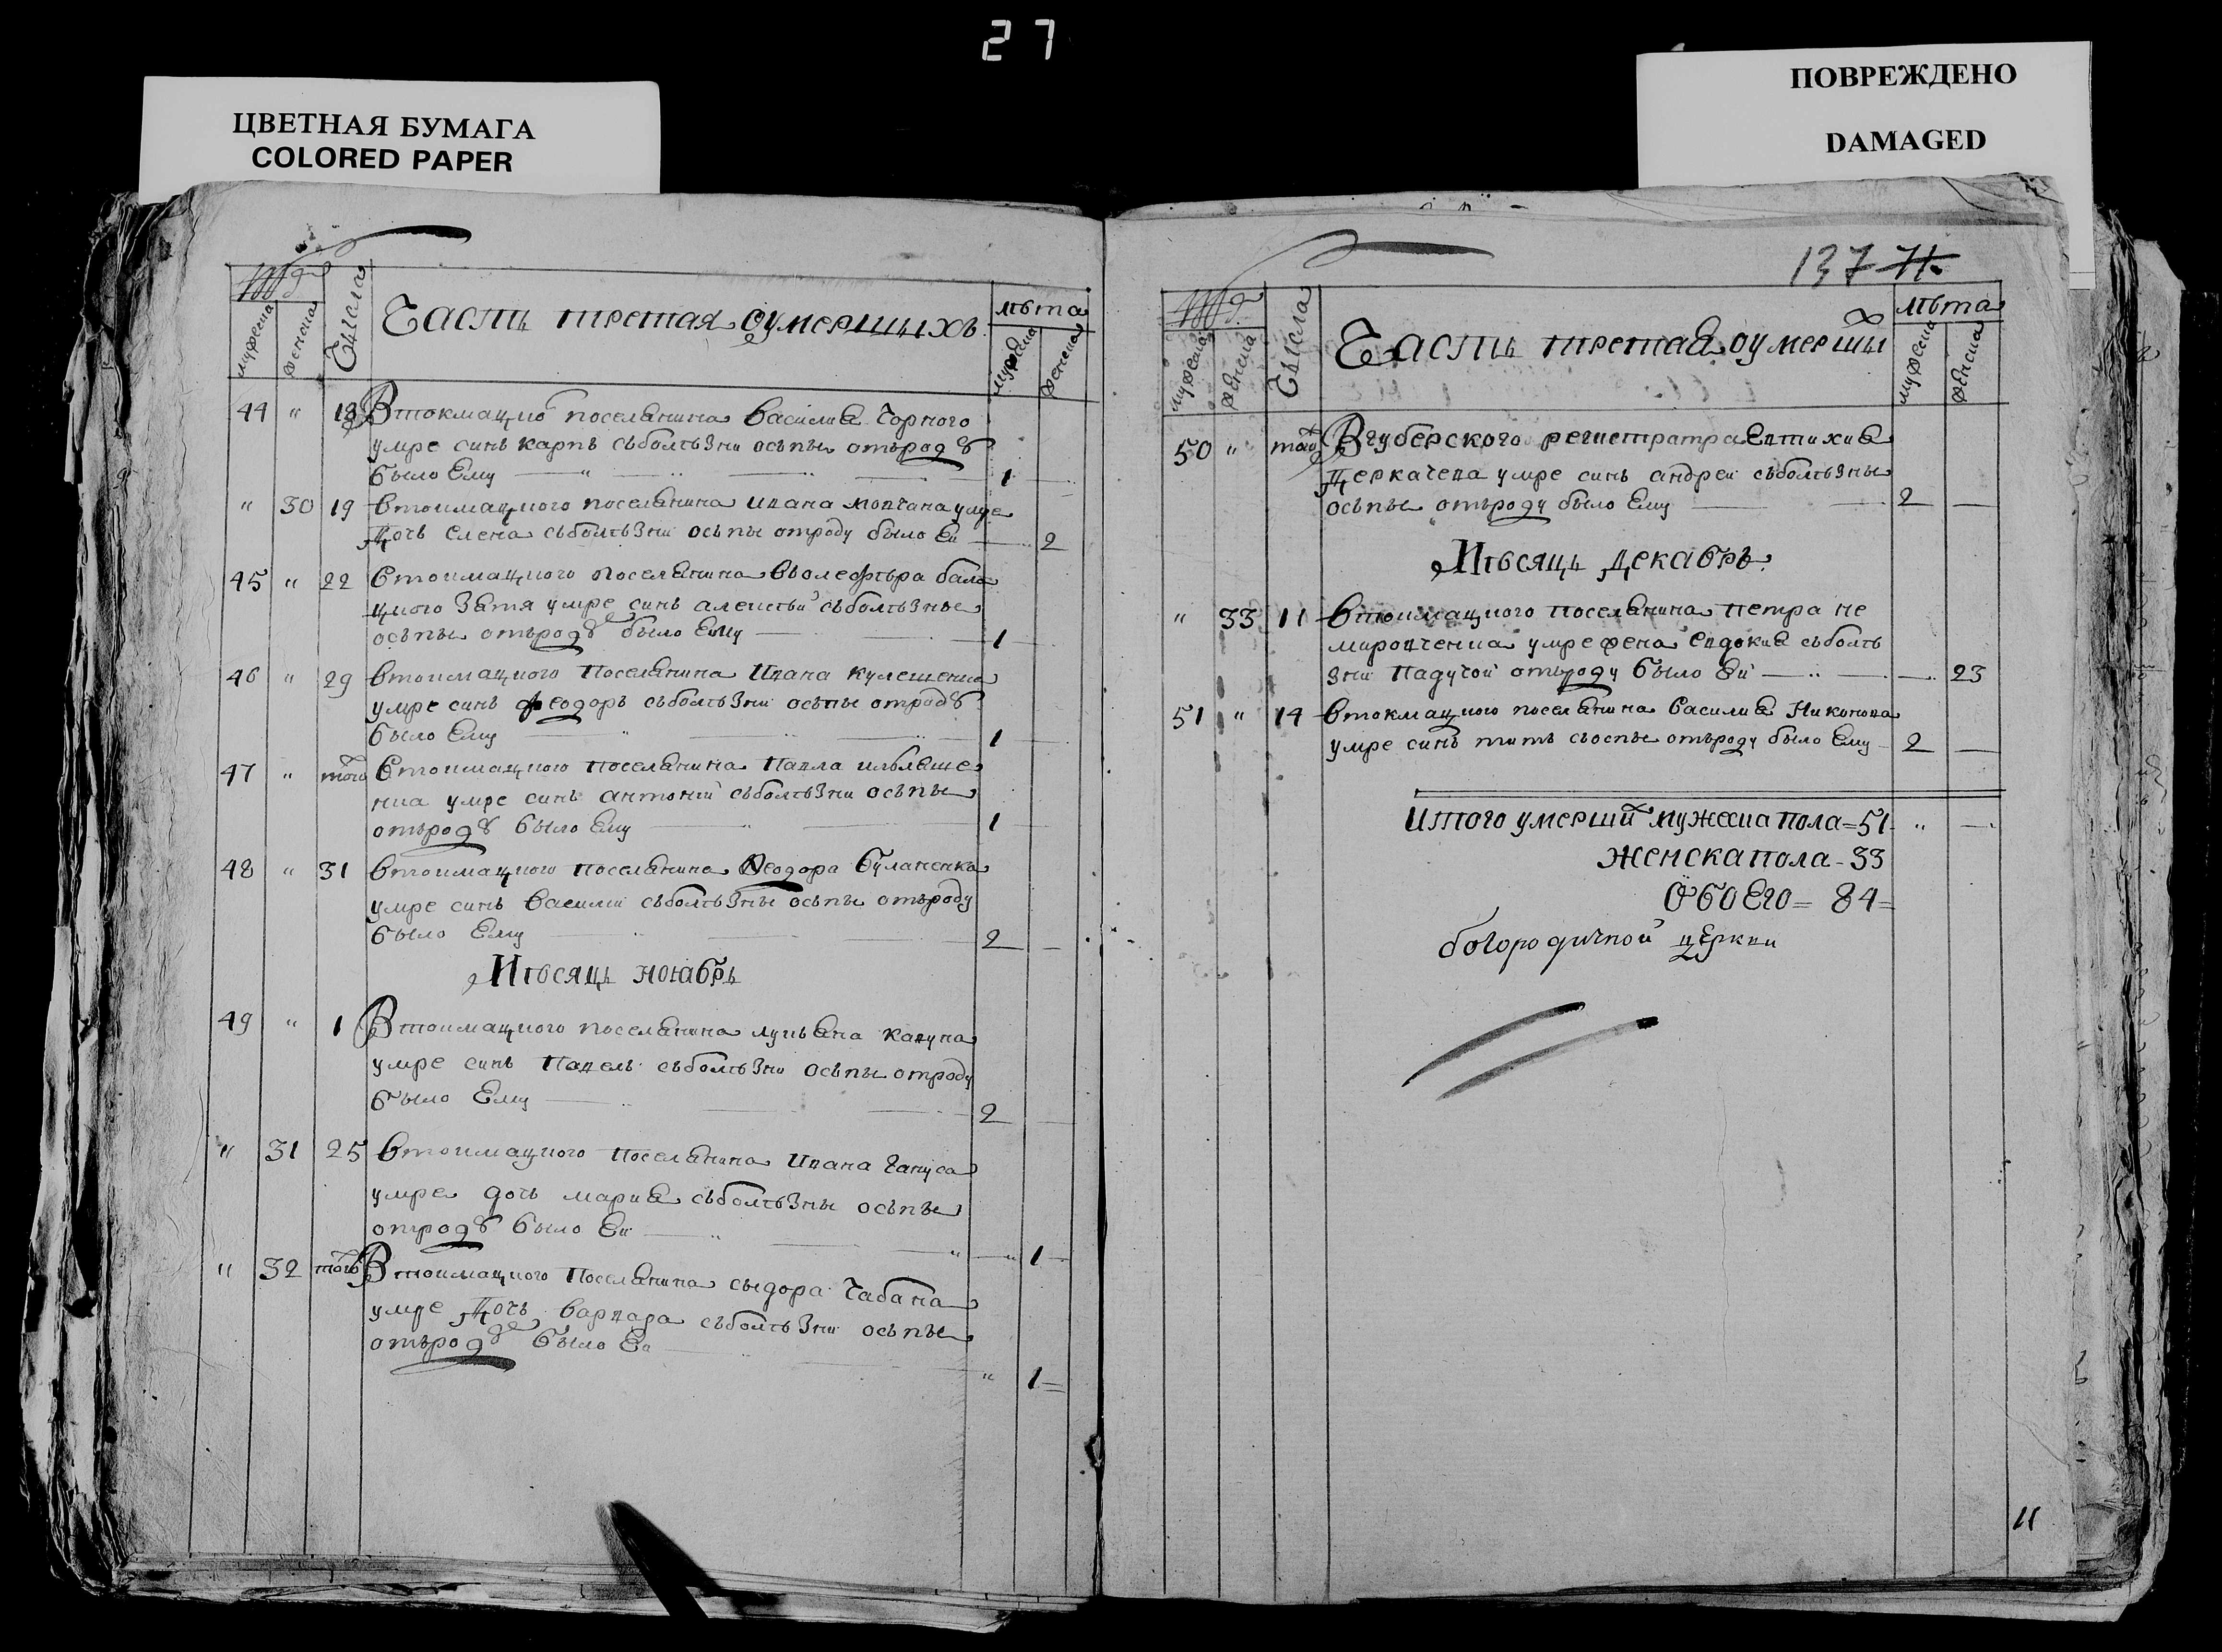 27
ЦВЕТНАЯ БУМАГА
COLORED PAPER
ПОВРЕЖДЕНО
DAMAGED
мужеска
женска
Числа
Часть третая оумершихъ
лѣта
мужеска
женска
44 " 18 Втокмацко поселянина василия Чорного
умре синъ карпъ съболѣзни осъпы отъроду
было Ему 1
" 30 19 втокмацкого поселянина ивана мовчана умре
дочь елена съболѣзни осъпы отроду было Ей 2
45 " 22 втокмацкого поселянина
зятя умре синъ алексѣй съболѣзны
осъпы отъроду было Ему 1
46 " 29 втокмацкого поселянина Ивана кулешенка
умре синъ феодоръ съболѣзни осъпы отроду
было Ему 1
47 " того втокмацкого поселянина Павла ильяше
нка умре синъ антоній съболѣзни осъпы
отъроду было Ему 1
48 " 31 втокмацкого поселянина Ѳеодора буланенка
умре синъ василий съболѣзны осъпы отъроду
было Ему 2
Мѣсяць ноябрь
49 " 1 Втокмацкого поселянина лукьяна кавуна
умре синъ Павелъ съболѣзни осъпы отроду
было Ему 2
" 31 25 втокмацкого поселянина Ивана Гануса
умре дочь мария съболѣзны осъпы
отроду было Ей " 1
" 32 того Втокмацкого поселянина сыдора Чабана
умре дочь варвара съболѣзни осъпы
отъроду было Ей " 1
137 71
мужеска
женска
Числа
Часть третая оумерших
лѣта
мужеска
женска
50 " того Вгуберского регистратра Евтихия
Деркачева умре синъ андрей съболѣзны
осъпы отъроду было Ему 2
Мѣсяць декабрь
" 33 11 втокмацкого поселянина петра не
мировченка умре жена евдокия съболѣ
зни падучой отъроду было Ей 23
51 " 14 втокмацкого поселянина василия Никонова
умре синъ титъ съоспы отъроду было Ему 2
Итого умерших мужеска пола=51 "
женска пола-33
Обоего= 84=
богородичной церкви
11